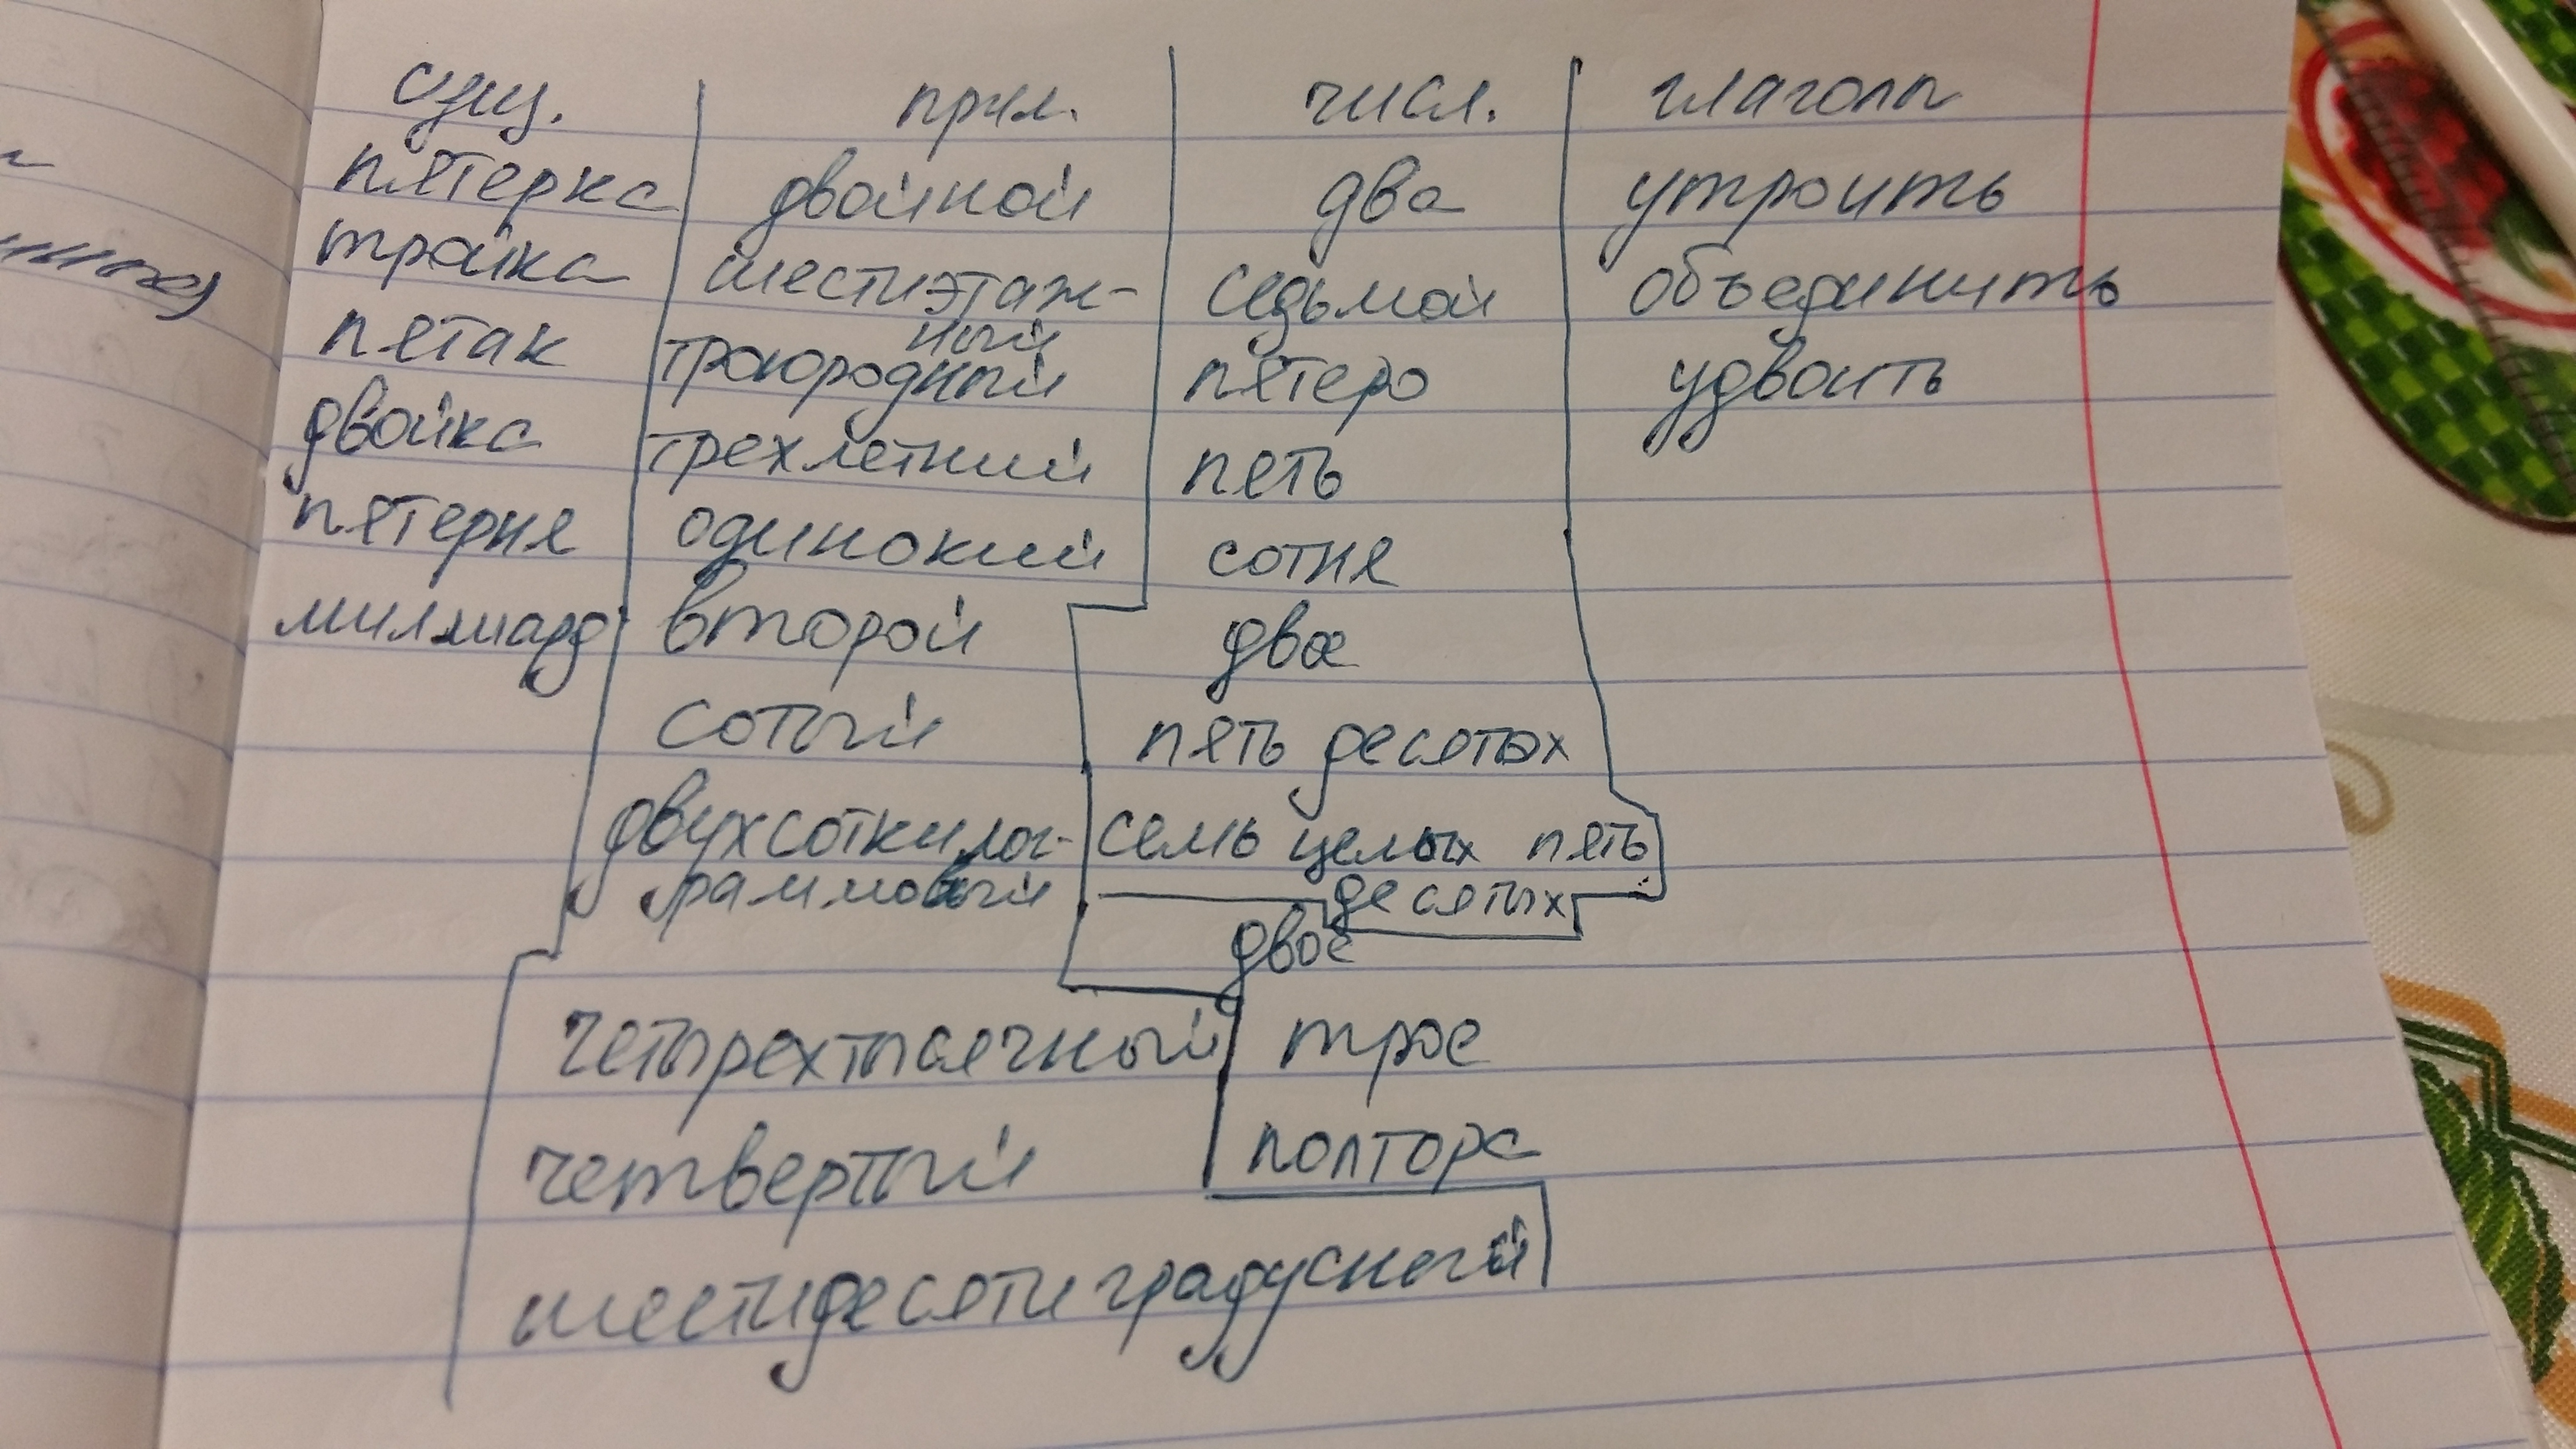 сущ. прил. числ. глаголы
пятерка двойной два утроить
тройка шестиэтаж- седьмой объединить
ный
пятак троюродный пятеро удвоить
двойка трехлетний пять
пятерня одинокий сотня
миллиард второй двое
сотый пять десятых
двухсоткилог- семь целых пять
раммовый десятых
двое
четырехтысячный трое
четвертый полтора
шестидесятиградусный